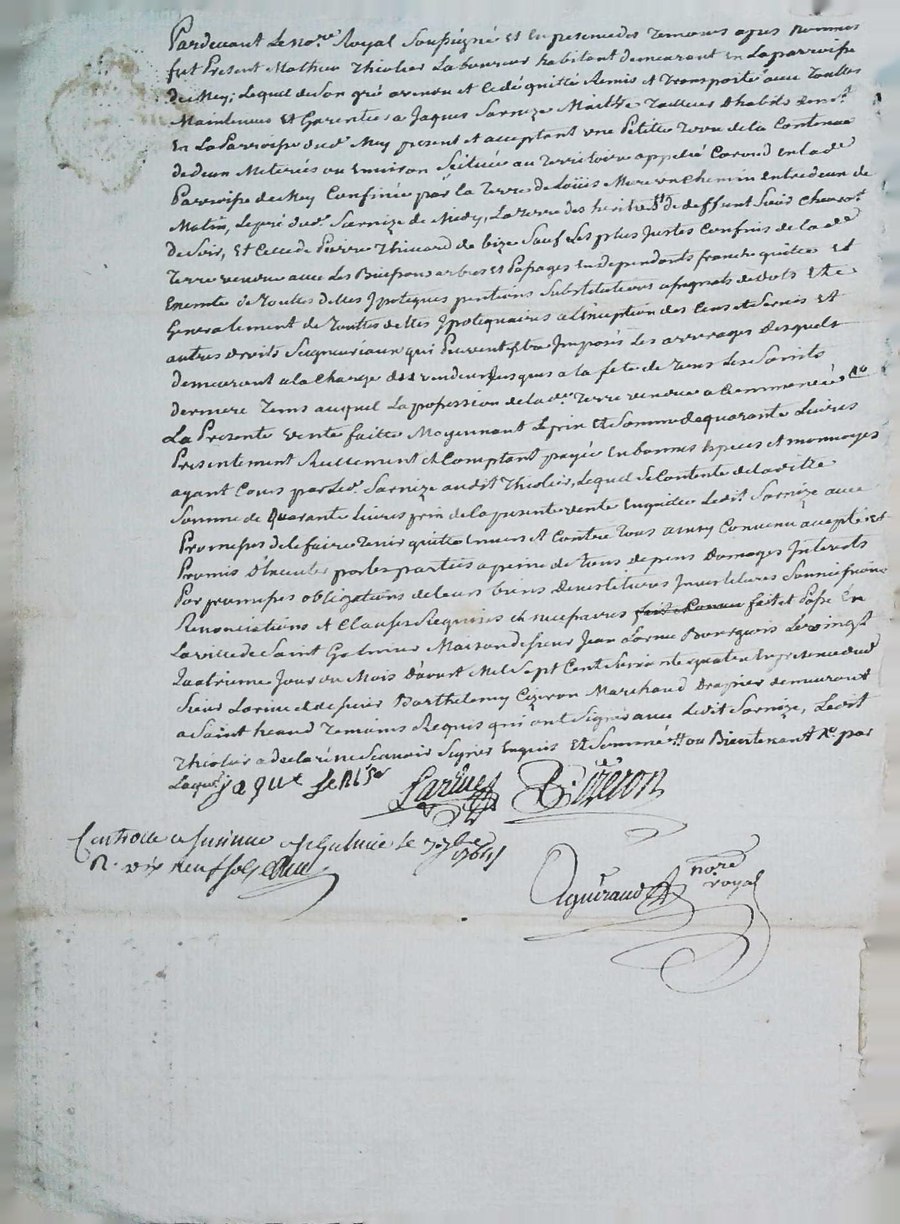 Pardevant Le nore Royal Soussigné Et En presence des Temoins apres Nommés
fut Present Mathieu Thiolier Laboureur habitant demeurant En La parroisse
de Mey; Lequel de Son gré a vendu et Cedé quitté Remis et Transporté avec Touttes
Maintenues Et Garenties a Jaques Sarnize Maittre Tailleur d'habits demt
En La Parroisse dud. Mey present et acceptant une Petitte Terre de la Contenue
de deux Meterées ou Environ Scituée au Territoire appellé En lade
Parroisse de Mey Confinée par la Terre de Loüis Mure un Chemin entre deux de
Matin, Le pré dud. Sarnize de Midy, La terre des heritiers de deffunt Sieur
de Soir, Et Celle de Pierre Thinard de bize Sauf Ses plus Justes Confins de la de
Terre vendue avec Les Buissons arbres et Passages En dependants franche quitte Et
Exemte de Touttes dettes Ipoteques pentions Substitutions dots Et
Generalement de Touttes dettes Ipotequaires a L'exception des Cens et Servis Et
autres droits Seigneuriaux qui Peuvent Estre Imposés Les arrerages Desquels
demeurant a la Charge du vendeur Jusques a la fete de Tous Les Saints
derniere Tems auquel La possession de lade Terre vendue a Commencée
La Presente vente faitte Moyennant Le prix et Somme de quarante Livres
Presentement Reellement et Comptant payée En bonnes Especes et monnoyes
ayant Cours par Led. Sarnize audit Thiolier, Lequel Se Contente de laditte
Somme de Quarante Livres prix de la presente vente En quitte Ledit Sarnize avec
Promesses de le faire Tenir quitte Envers et Contre Tous ainsy Convenu accepté Et
Promis D'Executer par les parties a peine de Tous depens Domages Interets
Par promesses obligations de Leurs biens Devestitures Investitures Soumissions
Renonciations et Clauses Requises et necessaires fait et Passé En
La ville de Saint Galmier Maison de Sieur Jean Larue Bourgeois Le vingt
quatrieme Jour du Mois D'aoust Mil Sept Cent Soixante quatre En presence dud.
Sieur Larue et de Sieur Barthelemy Cizeron Marchand Drapier demeurant
a Saint heand Temoins Requis qui ont Signé avec Ledit Sarnize, Ledit
Thiolier a declaré ne Scavoir Signer Enquis Et Sommé ou Bien tenant par
Laquet
Larue B. Cizeron
Controllé a St Galmier le 7 7bre 1764
R. neuf sols
Aguiraud nore royal